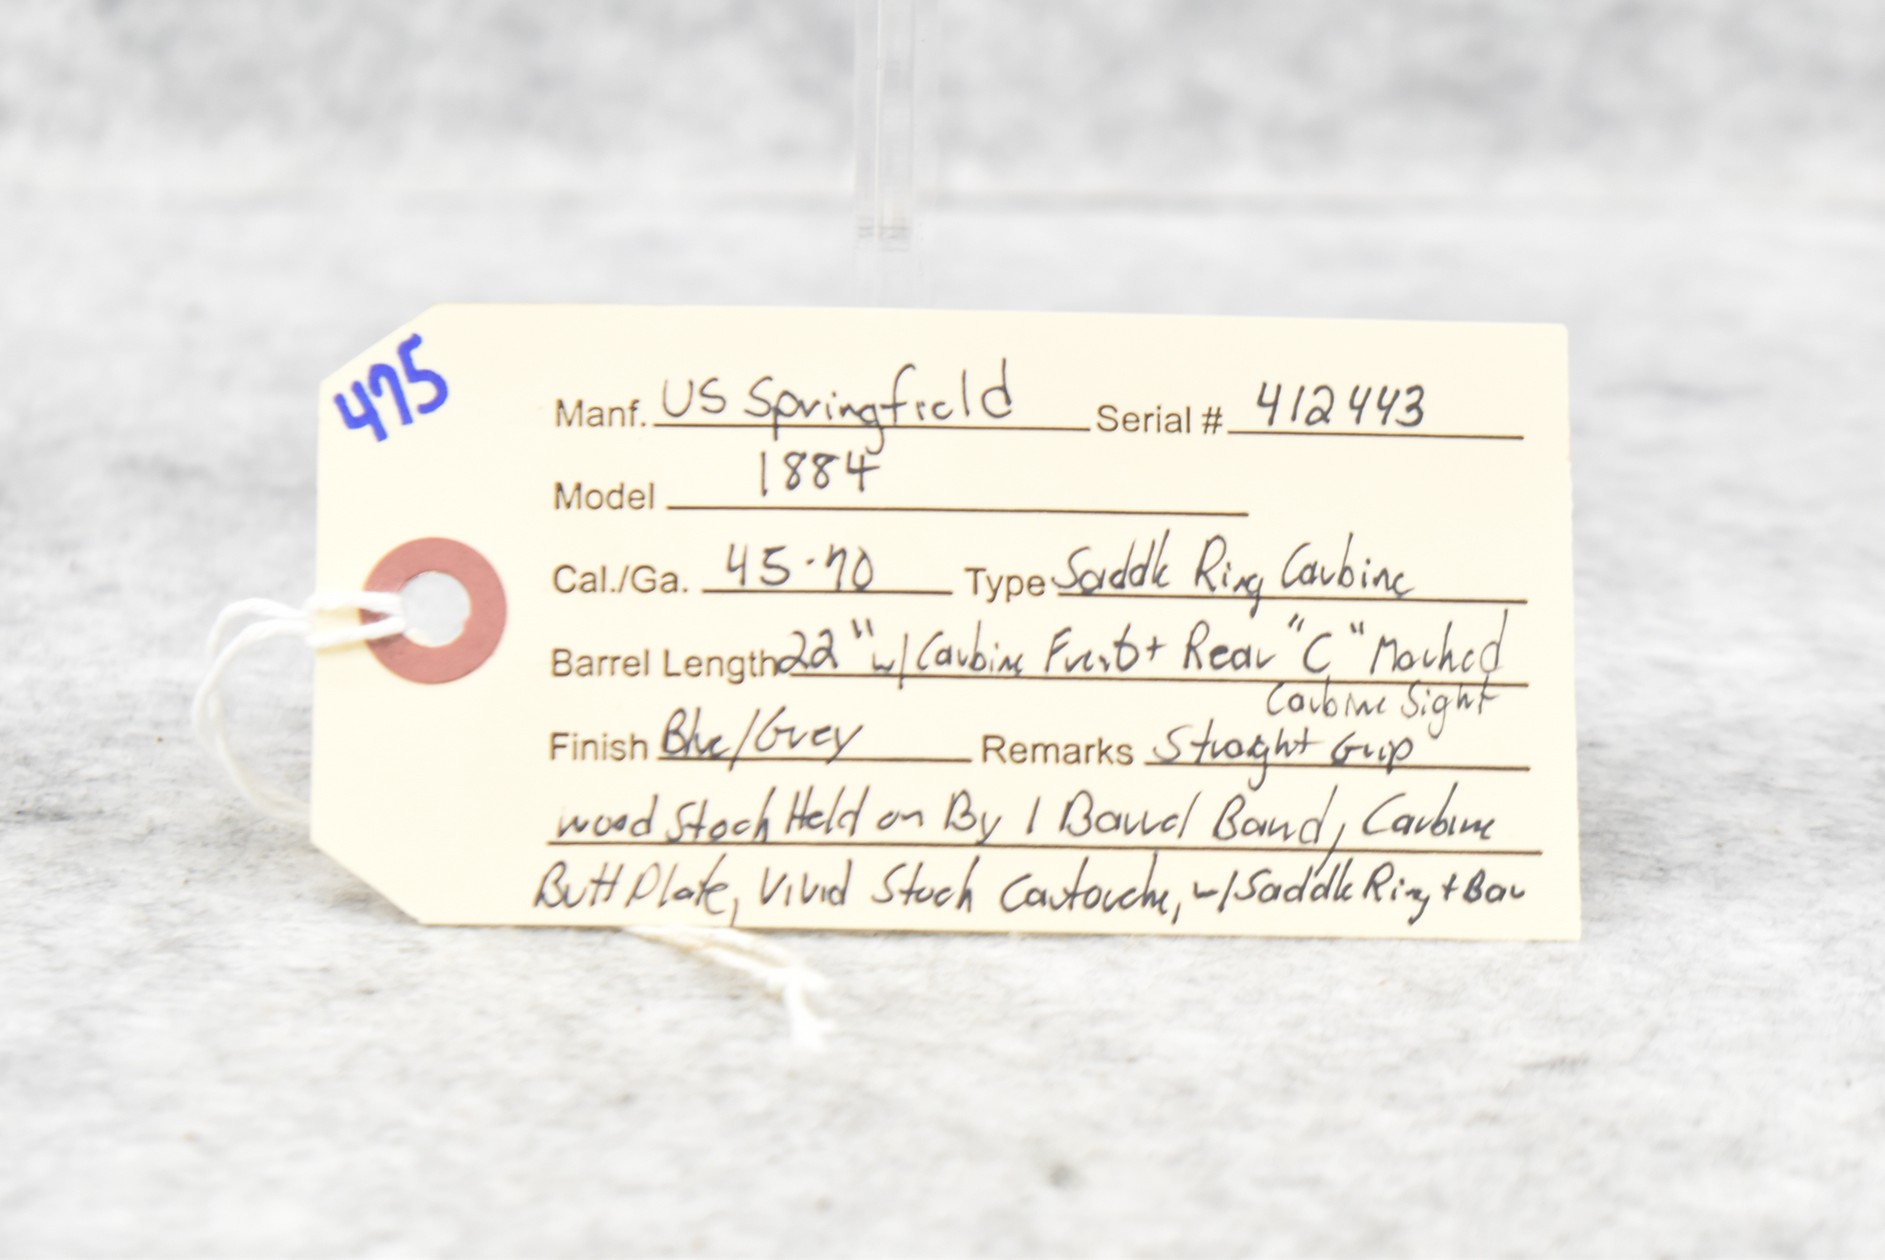 475
Manf. US Springfield Serial # 412443
Model 1884
Cal./Ga. 45-70 Type Saddle Ring Carbine
Barrel Length 22" w/ Carbine Front + Rear "C" Marked
Carbine Sight
Finish Blue/Grey Remarks Straight Grip
wood Stock Held on By 1 Barrel Band, Carbine
Butt Plate, Vivid Stock Cartouche, w/ Saddle Ring + Bar